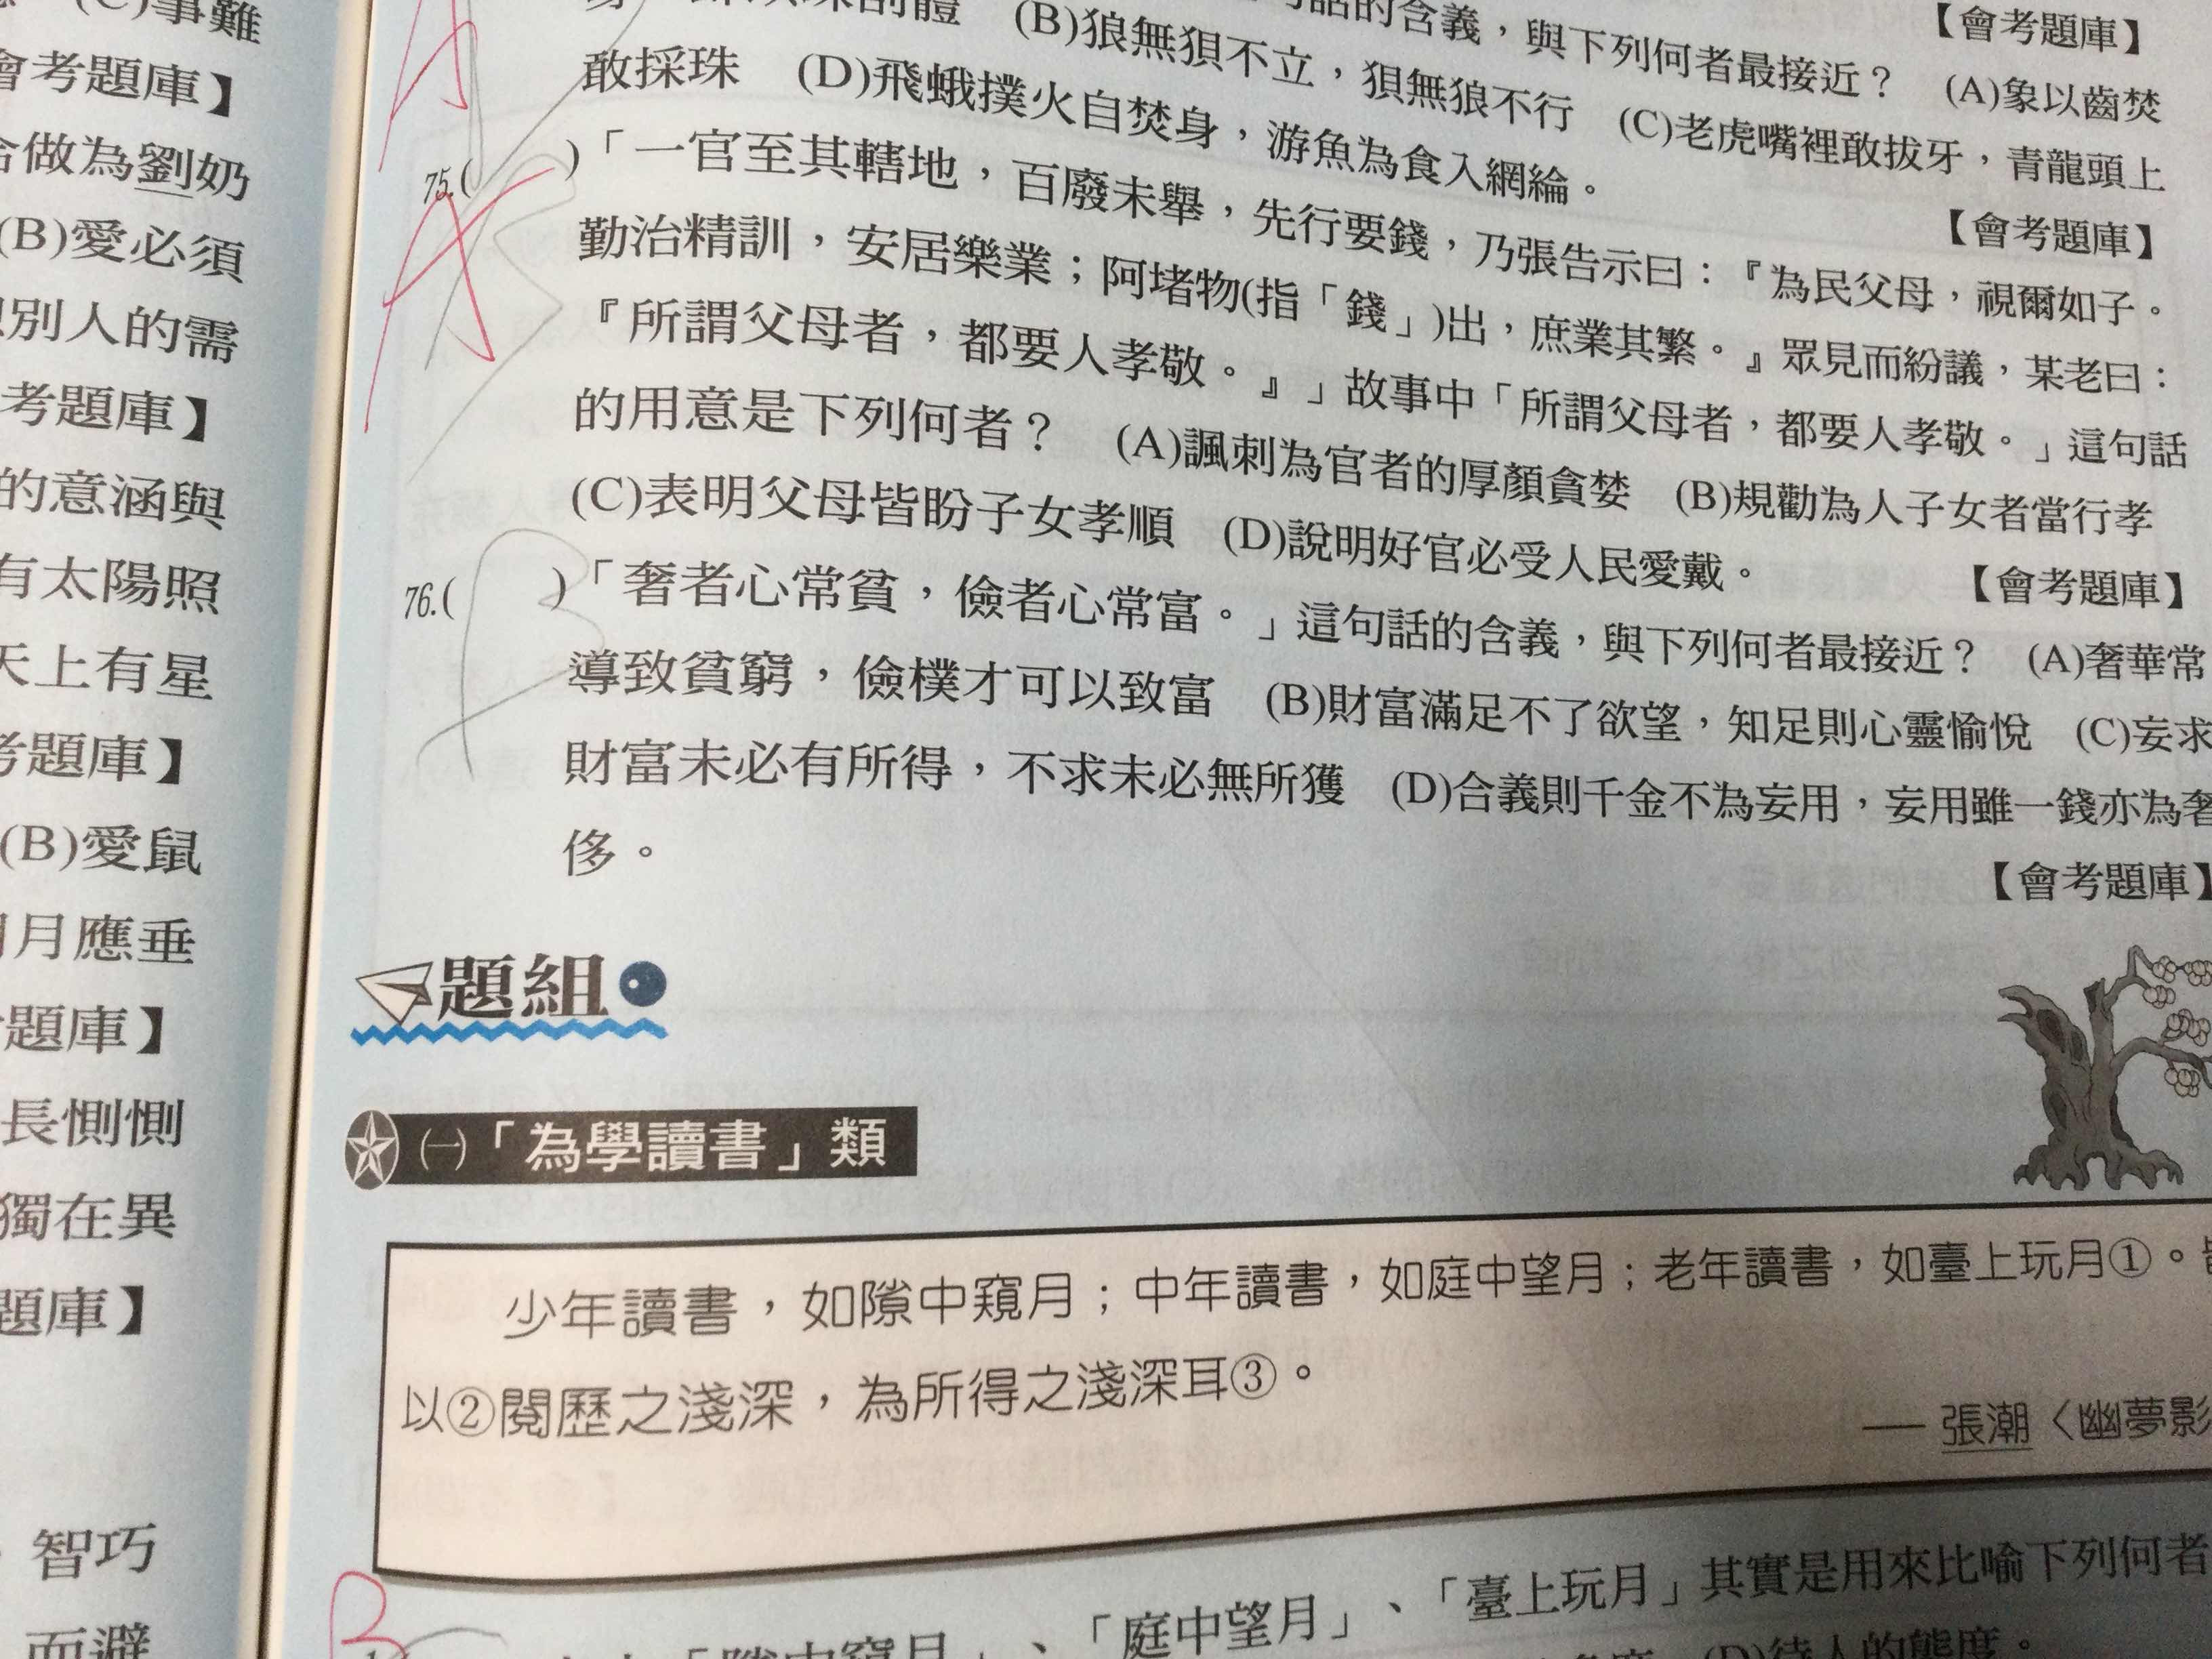 (C)事難
會考題庫】
做為劉奶
(B)愛必須
別人的需
考題庫】
的意涵與
有太陽照
天上有星
考題庫】
(B)愛鼠
月應垂
題庫】
長惻惻
獨在異
題庫】
智巧
而避
話的含義，與下列何者最接近？ (A)象以齒焚
【會考題庫】
(B)狼無狽不立，狽無狼不行 (C)老虎嘴裡敢拔牙，青龍頭上
敢採珠 (D)飛蛾撲火自焚身，游魚為食入網綸。
【會考題庫】
75.( )「一官至其轄地，百廢未舉，先行要錢，乃張告示曰：『為民父母，視爾如子。
勤治精訓，安居樂業；阿堵物(指「錢」)出，庶業其繁。』眾見而紛議，某老曰：
『所謂父母者，都要人孝敬。』」故事中「所謂父母者，都要人孝敬。」這句話
的用意是下列何者？ (A)諷刺為官者的厚顏貪婪 (B)規勸為人子女者當行孝
(C)表明父母皆盼子女孝順 (D)說明好官必受人民愛戴。
【會考題庫】
76.( )「奢者心常貧，儉者心常富。」這句話的含義，與下列何者最接近？ (A)奢華常
導致貧窮，儉樸才可以致富 (B)財富滿足不了欲望，知足則心靈愉悅 (C)妄求
財富未必有所得，不求未必無所獲 (D)合義則千金不為妄用，妄用雖一錢亦為奢
侈。
【會考題庫】
題組
㈠「為學讀書」類
少年讀書，如隙中窺月；中年讀書，如庭中望月；老年讀書，如臺上玩月①。
以②閱歷之淺深，為所得之淺深耳③。
—張潮〈幽夢影
B
「隙中窺月」、「庭中望月」、「臺上玩月」其實是用來比喻下列何者
(D)待人的態度。